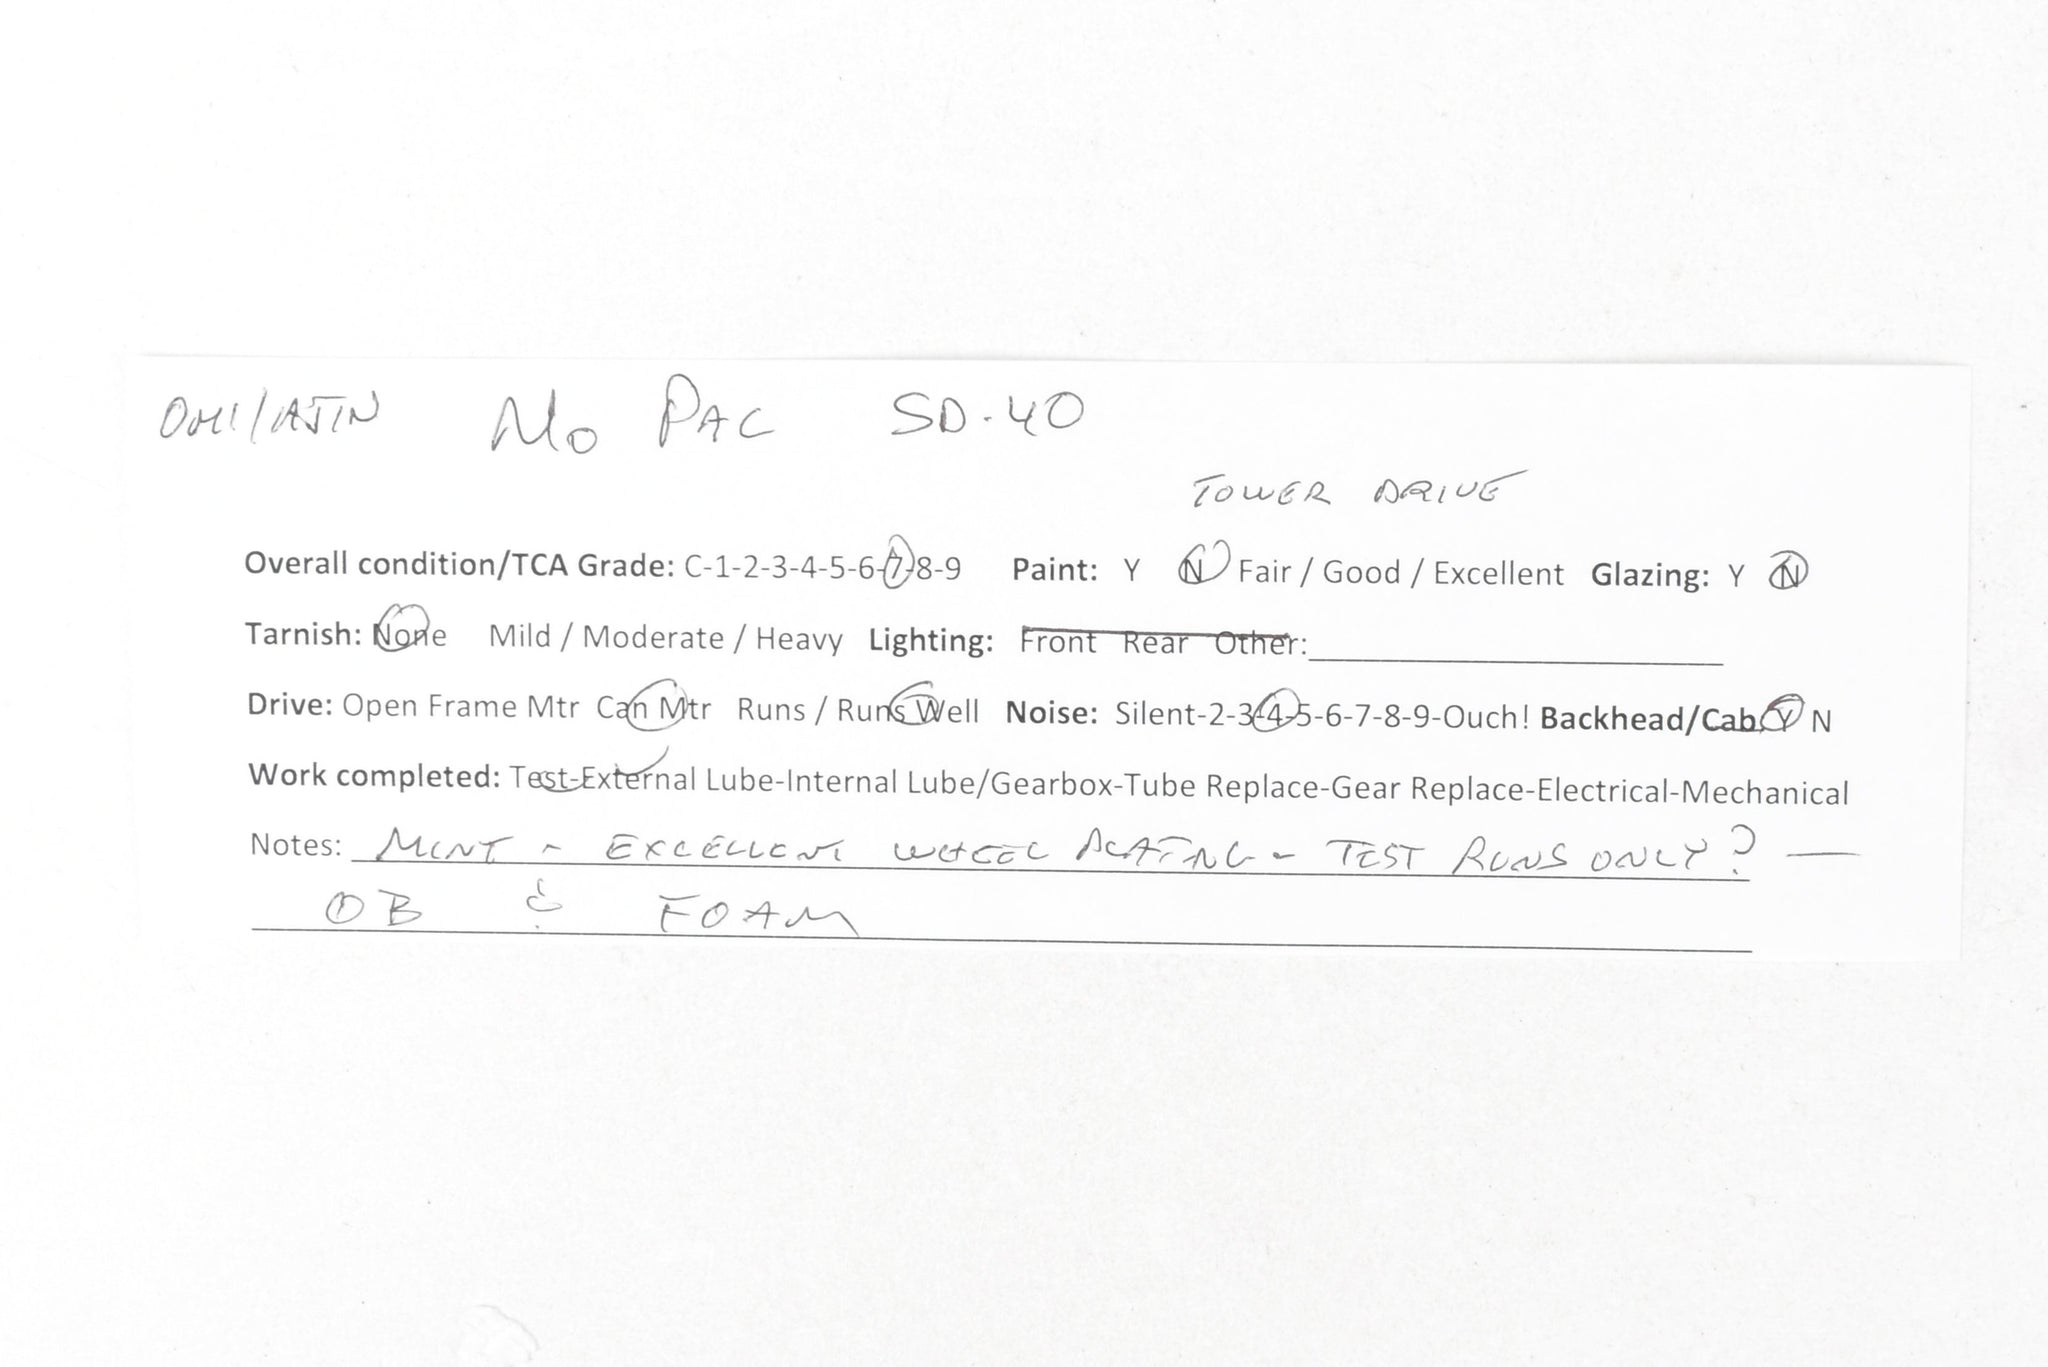 OMI/AJIN Mo PAC SD-40
TOWER DRIVE
Overall condition/TCA Grade: C-1-2-3-4-5-6-7-8-9 Paint: Y N Fair / Good / Excellent Glazing: Y N
Tarnish: None Mild / Moderate / Heavy Lighting: Front Rear Other:
Drive: Open Frame Mtr Can Mtr Runs / Runs Well Noise: Silent-2-3-4-5-6-7-8-9-Ouch! Backhead/Cab Y N
Work completed: Test-External Lube-Internal Lube/Gearbox-Tube Replace-Gear Replace-Electrical-Mechanical
Notes: MINT - EXCELLENT WHEEL PLATING - TEST RUNS ONLY? —
OB & FOAM